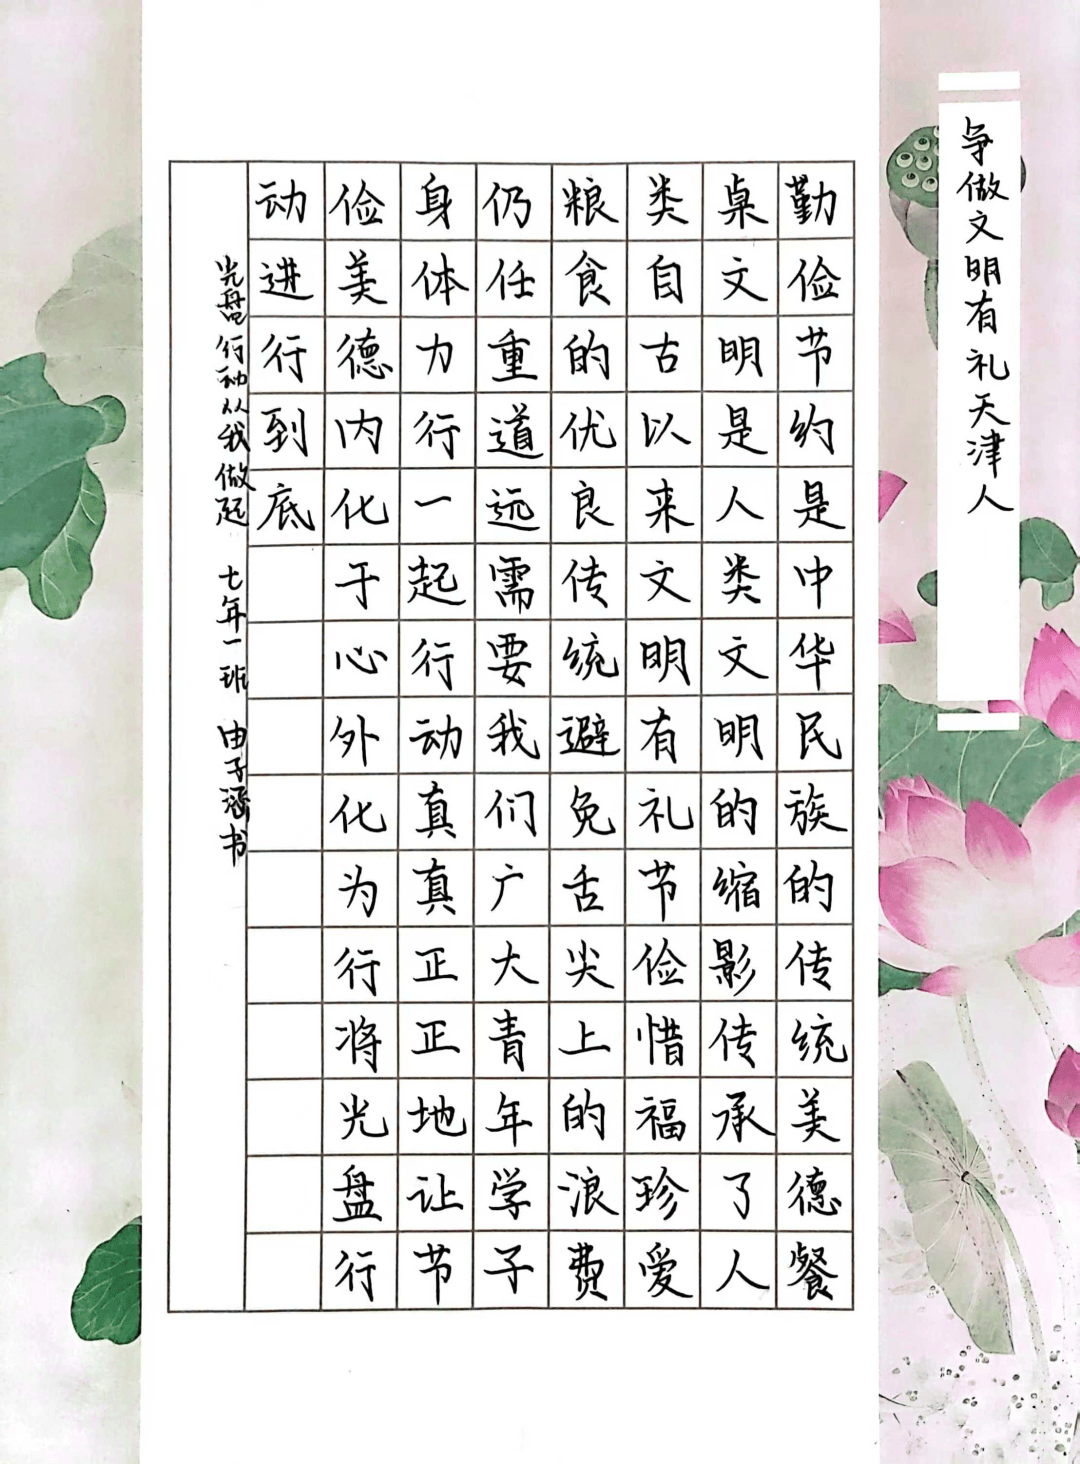 争做文明有礼天津人
勤俭节约是中华民族的传统美德餐
桌文明是人类文明的缩影传承了人
类自古以来文明有礼节俭惜福珍爱
粮食的优良传统避免舌尖上的浪费
仍任重道远需要我们广大青年学子
身体力行一起行动真真正正地让节
俭美德内化于心外化为行将光盘行
动进行到底
光盘行动从我做起 七年一班 由子涵书